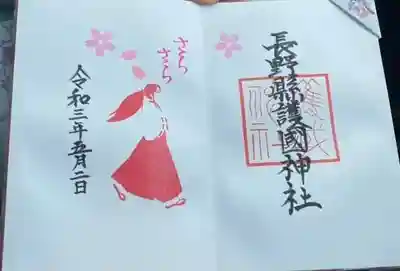 長野縣護國神社
さくら
さくら
令和三年五月二日